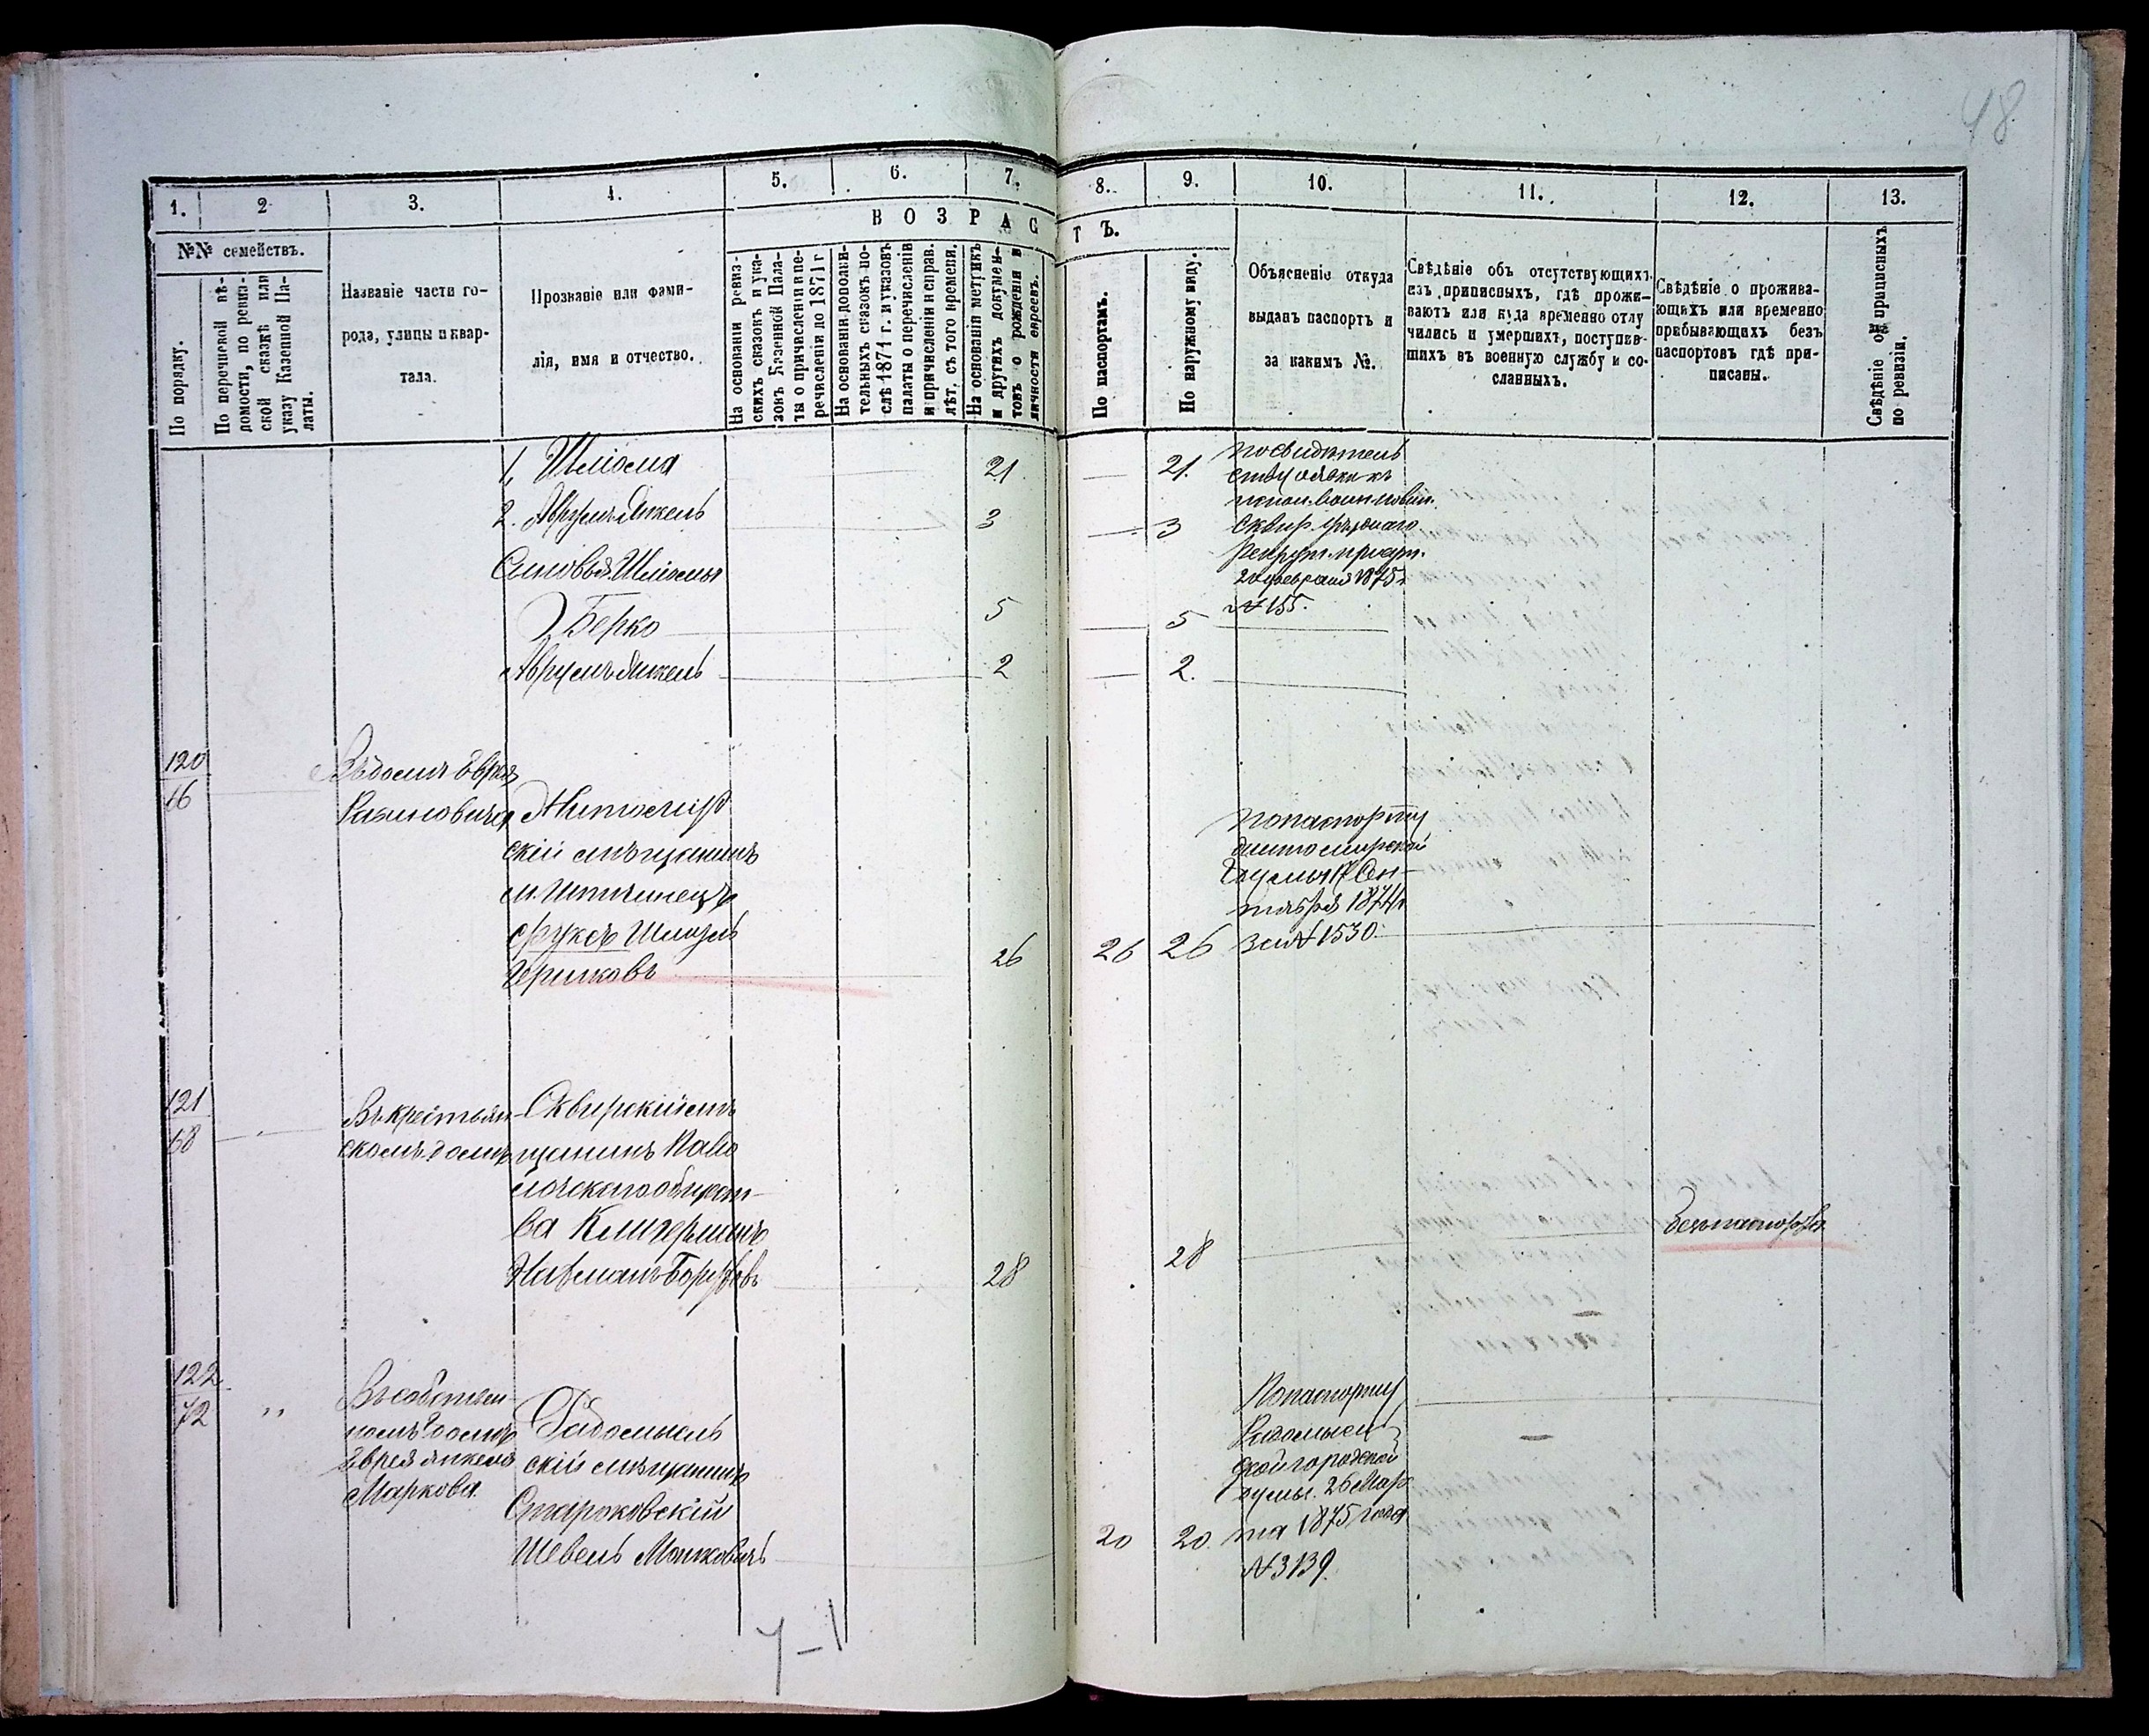 48
1. 2 3. 4. 5. 6. 7. 8. 9. 10. 11. 12. 13.
ВОЗРАСТЪ.
№№ семействъ.
По порядку.
По перечневой вѣ-
домости, по ревиз-
ской сказкѣ или
указу Казенной Па-
латы.
Названіе части го-
рода, улицы и квар-
тала.
Прозваніе или фами-
лія, имя и отчество.
На основаніи ревиз-
скихъ сказокъ и ука-
зовъ Казенной Пала-
ты о причисленіи и пе-
речисленіи до 1871 г
На основаніи дополни-
тельныхъ сказокъ по-
слѣ 1871 г. и указовъ
палаты о перечисленіи
и причисленіи и справ.
лѣт. съ того времени.
На основаніи метрикъ
и другихъ докумен-
товъ о рожденіи и
личности евреевъ.
По паспортамъ.
По наружному виду.
Объясненіе откуда
выданъ паспортъ и
за какимъ №.
Свѣдѣніе объ отсутствующихъ
изъ приписныхъ, гдѣ прожи-
ваютъ или куда временно отлу
чились и умершихъ, поступив-
шихъ въ военную службу и со-
сланныхъ.
Свѣдѣніе о прожива-
ющихъ или временно
пребывающихъ безъ
паспортовъ гдѣ при-
писаны.
Свѣдѣніе о приписныхъ
по ревизіи.
1, Шліома 21 21.
2. Аврумъ Янкель 3 3
Сыновья Шліомы
Берко 5 5
Аврумъ Янкель 2 2.
по свидѣтель
ству о явкѣ къ
испол. воин. повин.
Сквир. уѣзднаго
Рекрут. присут.
20 февраля 1875 г
№ 155.
120
66
Въ домѣ Еврея
Рабиновича
Житомир
скій мѣщанинъ
Шмуль
26 26 26
По паспорту
Житомирской
Думы 17 Сен-
тября 1874 г
за № 1530.
121
68
Въ крестьян-
скомъ домѣ
Сквирскій мѣ
щанинъ Паво
лочскаго общест-
ва Клигерманъ
28 28
безъ паспорта
122
72 ,,
Въ собствен-
номъ домѣ
Еврея Янкеля
Маркова.
Радомысль
скій мѣщанинъ
Староковскій
Шевель Мошковичъ
20 20.
По паспорту
Радомысль
ской городской
думы. 26 Мар
та 1875 года
№ 3139.
7-1